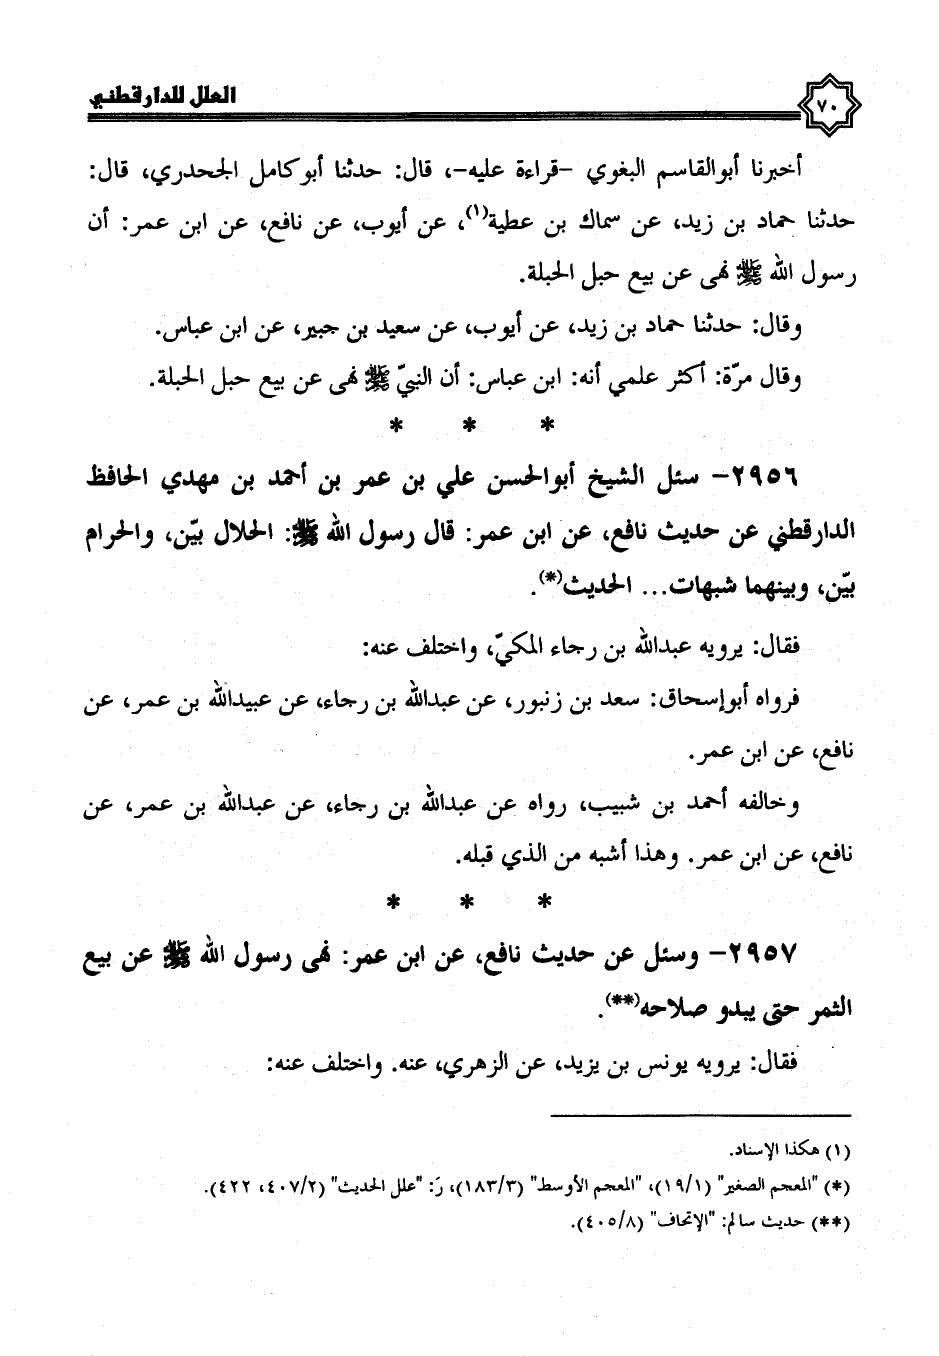 العلل للدارقطني
٧٠
أخبرنا أبوالقاسم البغوي -قراءة عليه-، قال: حدثنا أبوكامل الجحدري، قال:
حدثنا حماد بن زيد، عن سماك بن عطية(١)، عن أيوب، عن نافع، عن ابن عمر: أن
رسول الله ﷺ نهى عن بيع حبل الحبلة.
وقال: حدثنا حماد بن زيد، عن أيوب، عن سعيد بن جبير، عن ابن عباس.
وقال مرّة: أكثر علمي أنه: ابن عباس: أن النبيّ ﷺ نهى عن بيع حبل الحبلة.
* * *
٢٩٥٦- سئل الشيخ أبوالحسن علي بن عمر بن أحمد بن مهدي الحافظ
الدارقطني عن حديث نافع، عن ابن عمر: قال رسول الله ﷺ: الحلال بيّن، والحرام
بيّن، وبينهما شبهات... الحديث(*).
فقال: يرويه عبدالله بن رجاء المكيّ، واختلف عنه:
فرواه أبوإسحاق: سعد بن زنبور، عن عبدالله بن رجاء، عن عبيدالله بن عمر، عن
نافع، عن ابن عمر.
وخالفه أحمد بن شبيب، رواه عن عبدالله بن رجاء، عن عبدالله بن عمر، عن
نافع، عن ابن عمر. وهذا أشبه من الذي قبله.
* * *
٢٩٥٧- وسئل عن حديث نافع، عن ابن عمر: نهى رسول الله ﷺ عن بيع
الثمر حتى يبدو صلاحه(**).
فقال: يرويه يونس بن يزيد، عن الزهري، عنه. واختلف عنه:
(١) هكذا الإسناد.
(*) "المعجم الصغير" (١٩/١)، "المعجم الأوسط" (١٨٣/٣)، رَ: "علل الحديث" (٤٠٧/٢، ٤٢٢).
(**) حديث سالم: "الإتحاف" (٤٠٥/٨).